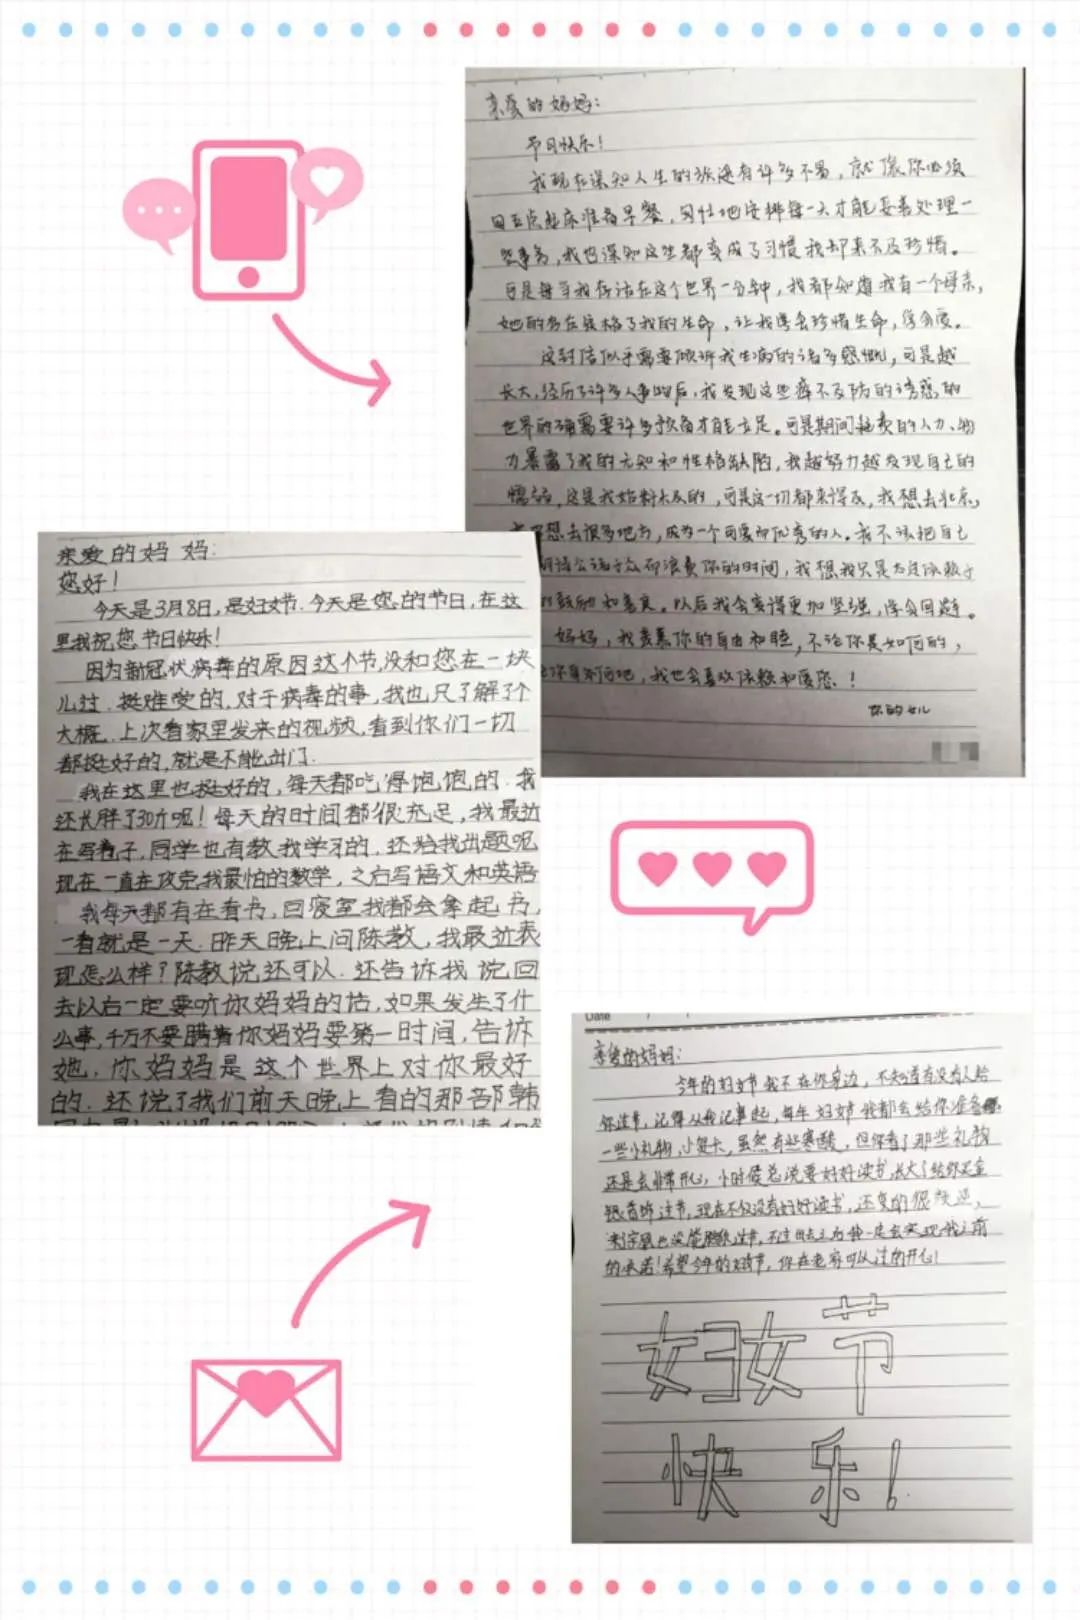 亲爱的妈妈：
节日快乐！
我现在深知人生的旅途有许多不易，就像你必须
五点起床准备早餐，匆忙地安排每一天才能妥善处理一
些事务，我也深知这些都变成了习惯我却来不及珍惜。
可是每当我存活在这个世界一分钟，我都知道我有一个母亲，
她的存在填格了我的生命，让我学会珍惜生命，学会爱。
这封信似乎需要倾诉我生病的诸多感慨，可是越
长大，经历了许多人事以后，我发现这些猝不及防的诱惑的
世界的确需要许多设备才能立足。可是期间耗费的人力、物
力暴露了我的无知和性格缺陷，我越努力越发现自己的
懦弱，这是我始料未及的，可是这一切都来得及，我想去北京，
想去很多地方，成为一个可爱而优秀的人。我不该把自己
公诸于众而浪费你的时间，我想我只是太过依赖于
鼓励和善良。以后我会变得更加坚强，学会回避。
妈妈，我羡慕你的自由和睦，不论你是如何的，
你身何地，我也会喜欢依赖和爱您！
你的女儿
亲爱的妈妈：
您好！
今天是3月8日，是妇女节.今天是您的节日，在这
里我祝您节日快乐！
因为新冠状病毒的原因这个节，没和您在一块
儿过.挺难受的，对于病毒的事，我也只了解了个
大概.上次看家里发来的视频，看到你们一切
都挺好的，就是不能出门.
我在这里也挺好的，每天都吃得饱饱的.我
还长胖了30斤呢！每天的时间都很充足，我最近
在写卷子，同学也有教我学习的，还给我出题呢
现在一直在攻克我最怕的数学，之后写语文和英语
我每天都有在看书，回寝室我都会拿起书，
一看就是一天.昨天晚上问陈教，我最近表
现怎么样？陈教说还可以.还告诉我说回
去以后一定要听你妈妈的话，如果发生了什
么事，千万不要瞒着你妈妈要第一时间，告诉
她.你妈妈是这个世界上对你最好
的.还说了我们前天晚上看的那部韩
Date / /
亲爱的妈妈：
今年的妇女节我不在你身边，不知道有没有人给
你过节，记得从我记事起，每年妇女节我都会给你准备
一些小礼物，小贺卡，虽然有些寒酸，但你看了那些礼物
还是会非常开心，小时候总说要好好读书，长大了给你买金
银首饰过节，现在不仅没有好好读书，还变的很叛逆，
来学校也没能陪你过节，不过出去之后我一定会实现我之前
的承诺！希望今年的妇女节，你在老家可以过的开心！
妇女节
快乐！